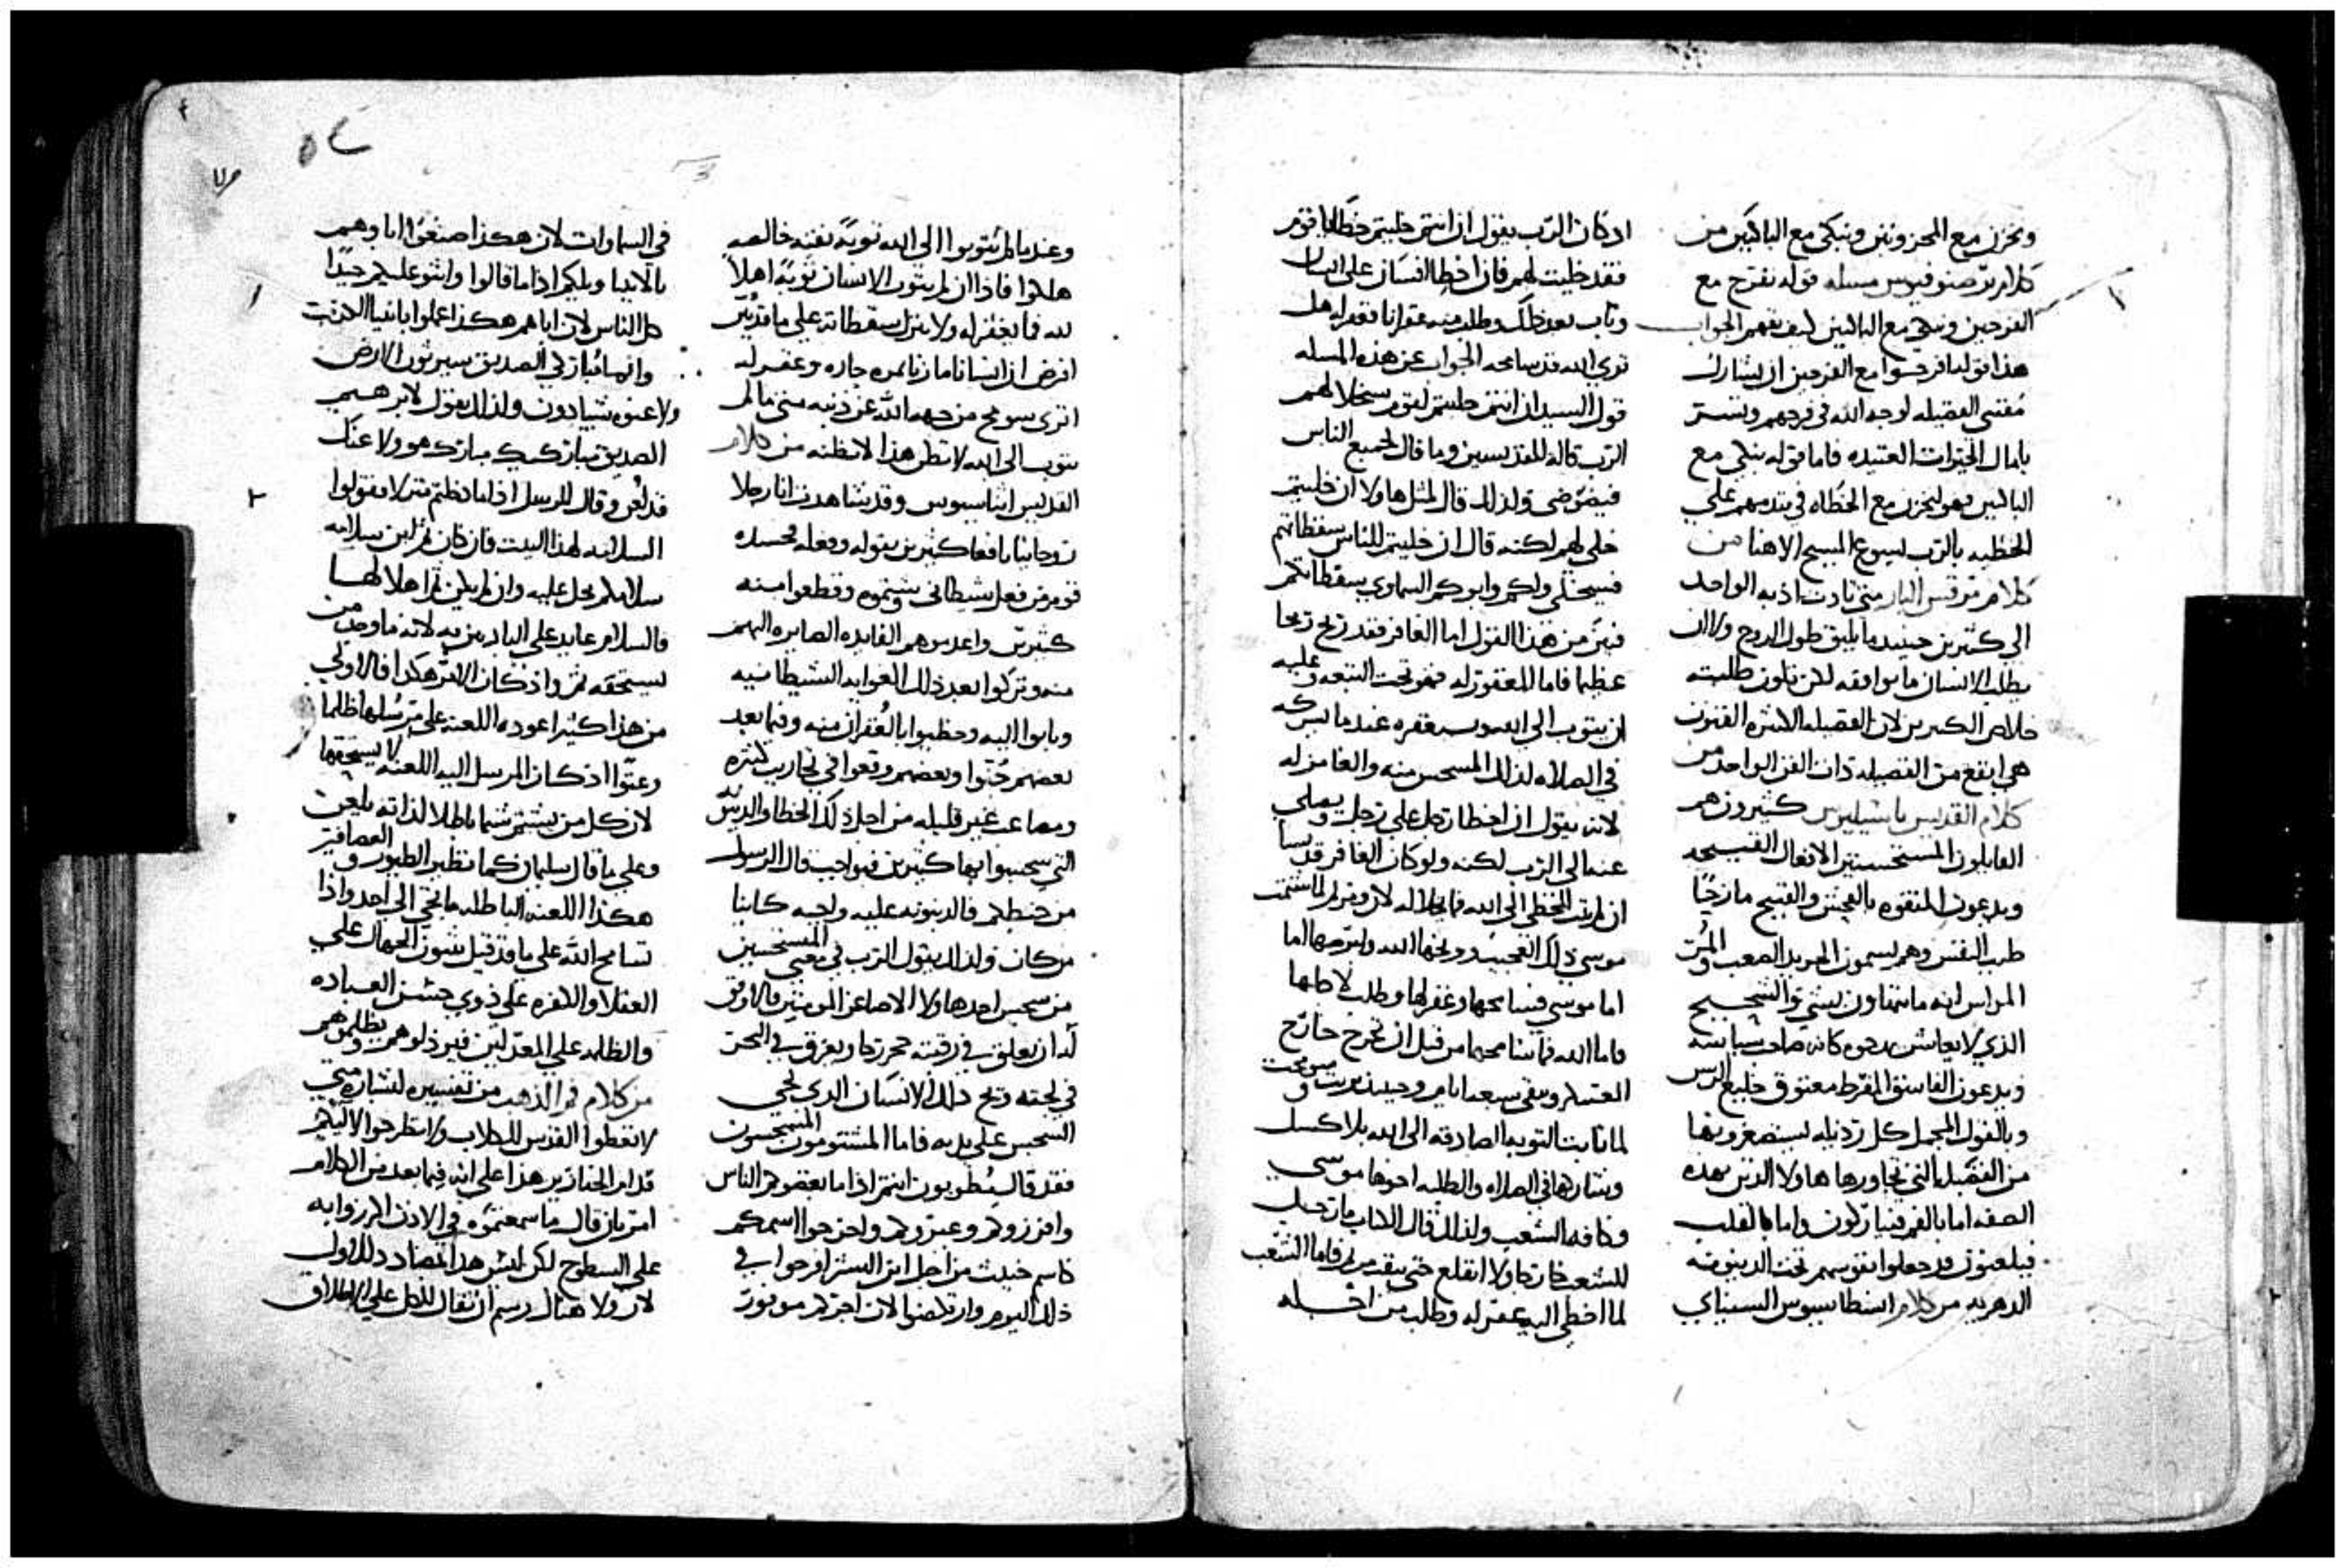 ونحزن مع المحزونين ونبكي مع الباكين من
كلام برصنوفيوس مسله قوله نفرح مع
الفرحين ونبكي مع الباكين كيف نفهم الجواب
هذا قوله افرحوا مع الفرحين ان يشارك
مقتني الفضيله لوجه الله في فرحهم ويستر
بامال الخيرات العتيده فاما قوله نبكي مع
الباكين فهو ليحزن مع الخطاه في ندمهم علي
الخطيه بالرب يسوع المسيح الاهنا من
كلام مرقس البار متي تادت اذيه الواحد
الي كثيرين حينيد ما يليق طول الروح ولا ان
يطلب الانسان ما يوافقه لكن تكون طلبته
خلاص الكثيرين لان الفضيله الكثيره الفنون
هي انفع من الفضيله ذات الفن الواحد من
كلام القديس باسيليوس كثيرون هم
القايلون المستحسنين الافعال القبيحه
ويدعون المتفوه بالفحش والقبيح مازحًا
طيب النفس وهم يسمون الحريد الصعب المُر
المراس انه ما يتهاون بشي والشحيح
الذي لا يعاشر
ويدعون الفاسق المفرط معتوق خليع الرسن
وبالقول المجمل كل رذيله يستصغرونها
من الفضيله التي تجاورها هاولا الذين بهذه
الصفه اما بالفم فيباركون واما بالقلب
فيلعنون قد جعلوا نفوسهم تحت الدينونه
الدهريه من كلام انسطاسيوس السيناي
اذ كان الرب يقول ان انتم خليتم خطايا قوم
فقد خليت لهم فان اخطا انسان علي انسان
وتاب بعد ذلك وطلب منه غفرانا فغفر له هل
تري الله قد سامحه الجواب عن هذه المسله
قول السيد ان انتم خليتم لقوم سيخلا لهم
الرب قاله للقديسين وما قال لجميع الناس
فيضوضي ولذلك قال لمثل هاولا ان خليتم
خلي لهم لكنه قال ان خليتم للناس سقطاتهم
فسيخلي ولكم وابوكم السماوي سقطاتكم
فبين من هذا القول اما الغافر فقد ربح ربحا
عظيما فاما المغفور له فهو تحت التبعه وعليه
ان يتوب الي
في الصلاه لذلك
لانه يقول ان اخطا رجل علي رجل يصلي
عنه الي الرب لكنه ولو كان الغافر قديسا
ان لم يتب المخطي الي الله فما يخلا له لان مريم لما شتمت
موسي ذلك العجيب وبخها الله وابرصها اما
اما موسي فسامحها وغفر لها وطلب لاجلها
فاما الله فما سامحها من قبل ان تخرج خارج
العسكر وتبقي سبعه ايام وحينيذ بريت وسومحت
لما تابت التوبه الصادقه الي الله بلا كسل
وشاركها في الصلاه والطلبه اخوها موسي
وكافه الشعب ولذلك قال الكتاب ما رحل
الشعب خارجا ولا انقلع حتي تنقت مريم فاما الشعب
لما اخطي اليه غفر له وطلب من اجله
وعندما لم يتوبوا الي الله توبة نقيه خالصه
هلكوا فاذا ان لم يتوب الانسان توبةً اهلاً
لله فما يغفر له ولا يترك سقطاته علي ما قد تبين
افرض ان انسانا ما زنا بمره جاره وغفر له
اتري سومح من جهه الله عن ذنبه متي ما لم
يتوب الي الله لا تظن هذا لا تظنه من كلام
القديس اثناسيوس وقد شاهدت انا رجلا
روحانيا نافعا كثيرين بقوله وفعله فحسده
قوم من فعل شيطاني وشتموه وقطعوا منه
كثيرين واعدموهم الفايده الصايره اليهم
منه وتركوا بعد ذلك العوايد الشيطانيه
وتابوا اليه وحظيوا بالغفران منه وفيما بعد
بعضهم جُنوا وبعضهم وقعوا في تجارب كثيره
ومصاعب غير قليله من اجل ذلك الخطا والدين
التي سحبوا بها كثيرين فبواجب قال الرسول
من خبطكم فالدينونه عليه واجبه كاينا
من كان ولذلك يقول الرب في معني المستخسين
من سجس احد هاولا الاصاغر المومنين فالاوفق
له ان يعلق في رقبته حجر رحا ويغرق في البحر
في لجته ويح ذلك الانسان الذي يجي
السجس علي يديه فاما المشتومون المسجسون
فقد قال طوبون انتم اذا ما بغضوكم الناس
وافرزوكم وعيروكم واخرجوا اسمكم
كاسم خبيث من اجل ابن البشر افرحوا في
ذلك اليوم وارتكضوا لان اجركم موفور
في السماوات لان هكذا صنعوا اباوهم
بالانبيا ويلكم اذا ما قالوا واثنو عليكم جيدًا
كل الناس لان اباهم هكذا عملوا بانبيا الكذب
وانما مُبارَكي الصديق سيرثون الارض
ولاعنوه يبيادون ولذلك يقول لابرهيم
الصديق مباركيك مباركه هو ولاعنك
قد لُعن وقال للرسل اذا ما دخلتم منزلا فقولوا
السلامه لهذا البيت فان كان ثم ابن سلامه
سلامكم يحل عليه وان لم يكن ثم اهلا لها
فالسلام عايد علي البادين به لانه ما وجد من
يستحقه ثم واذ كان الامر هكذا فالاولي
من هذا كثيرا عوده اللعنه علي مرسلها ظلما
وعنوا اذ كان المرسل اليه اللعنه لا يستحقها
لان كل من يشتم شتما باطلا لذاته يلعن
وعلي ما قال سليمان كما تطير الطيور والعصافير
هكذا اللعنه الباطله ما تجي الي احد واذا
تسامح الله علي ما قد قيل يثورن الجهال علي
العقلا والكفره علي ذوي حسن العباده
والظلمه علي المعدلين فيرذلوهم ويظلموهم
من كلام فم الذهب من تفسير لبشاره متي
لا تعطوا القدس للكلاب ولا تطرحوا لاليكم
قدام الخنازير هذا علي انه فيما بعد من الكلام
امر بان قال ما سمعتموه في الاذن اكرزوا به
علي السطوح لكن ليس هذا مضاد ذلك الاول
لان ولا هناك رسم ان تقال للكل علي الاطلاق